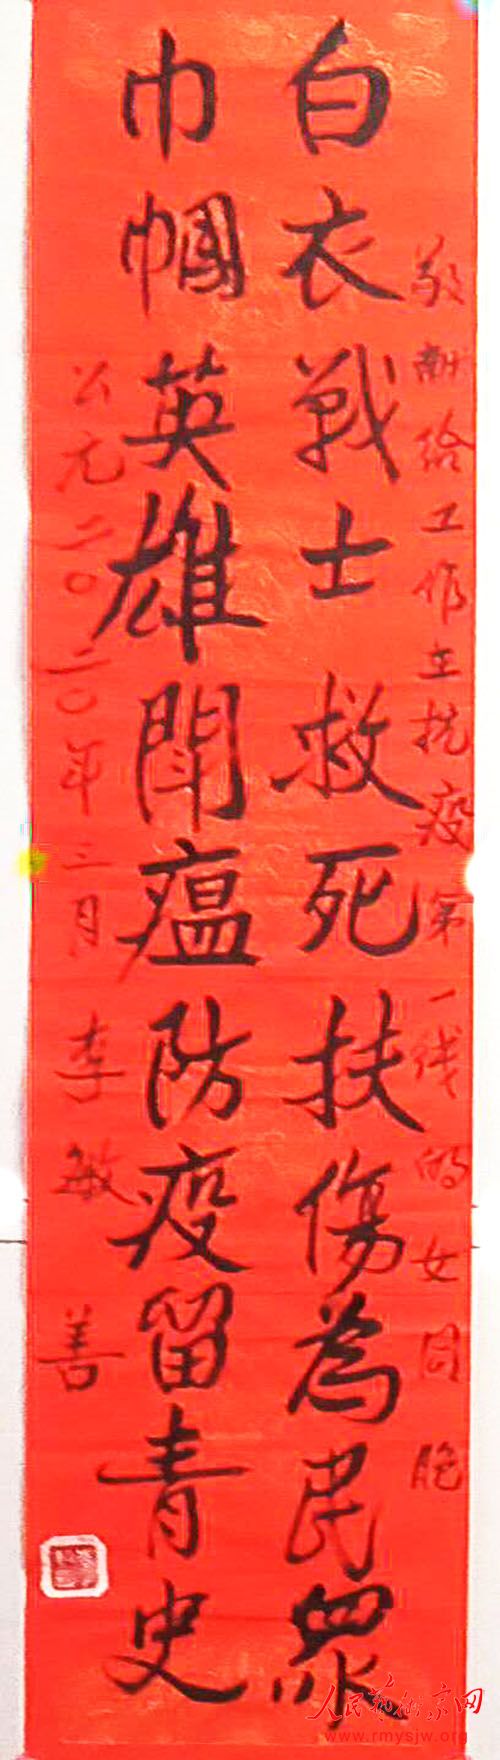 敬献给工作在抗疫第一线的女同胞
白衣戰士救死扶傷為民眾
巾幗英雄聞瘟防疫留青史
公元二〇二〇年三月 李敏善
人民艺术家网
www.rmysjw.org